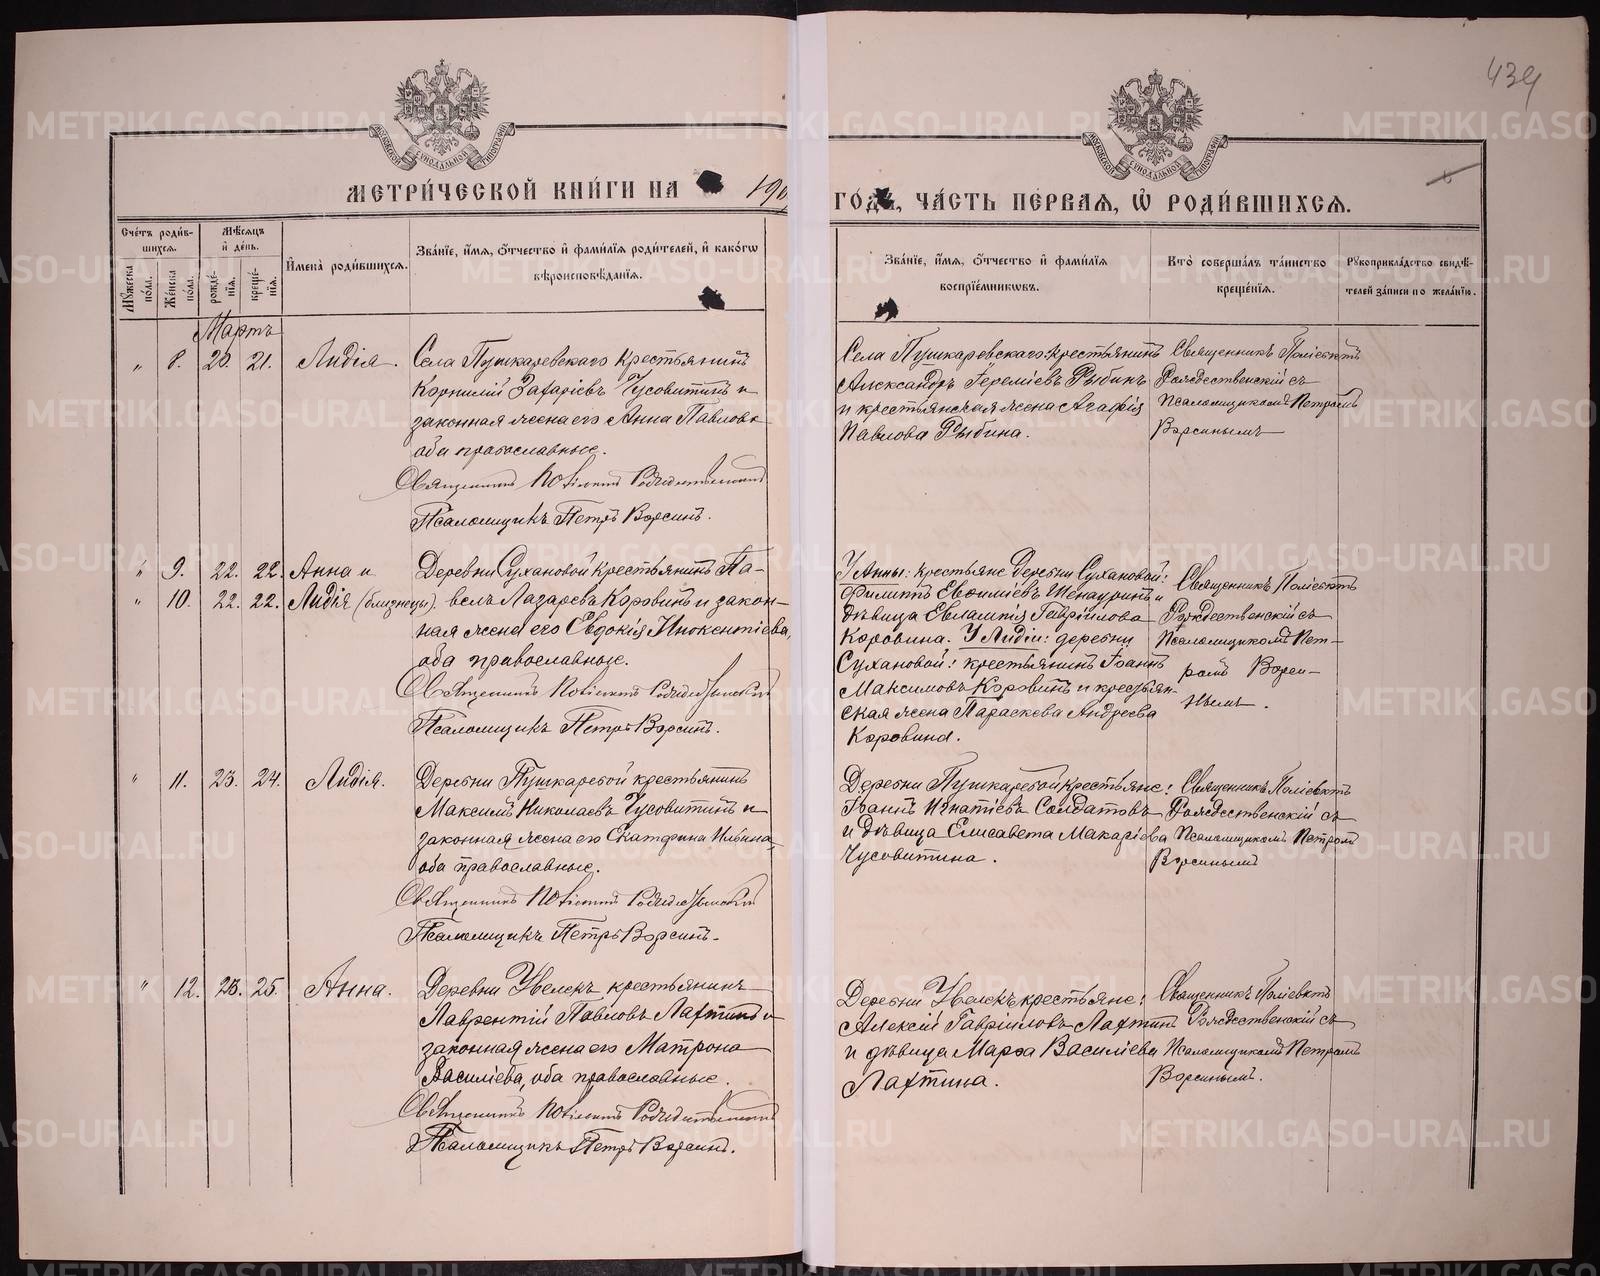 439
МОСКОВСКОЙ СѴНОДАЛЬНОЙ ТИПОГРАФІИ
МОСКОВСКОЙ СѴНОДАЛЬНОЙ ТИПОГРАФІИ
МЕТРИ́ЧЕСКОЙ КНИ́ГИ НА 190
ГО́ДЪ, ЧА́СТЬ ПЕ́РВАЯ, Ѿ РОДИ́ВШИХСЯ.
Сче́тъ роди́в-
шихся.
Мꙋжеска по́ла.
Же́нска по́ла.
Мѣ́сяцъ
и҆ де́нь.
рожде́-нїя.
креще́-нїя.
И҆мена̀ роди́вшихся.
Зва́нїе, и҆́мя, ѻ҆́тчество и҆ фами́лїя роди́телей, и҆ како́гѡ
вѣроисповѣ́данїя.
Зва́нїе, и҆́мя, ѻ҆́тчество и҆ фами́лїя
воспрїе́мникѡвъ.
Кто̀ соверша́лъ та́инство
креще́нїя.
Рꙋкоприкла́дство свидѣ́-
телей за́писи по жела́нїю.
Мартъ
„ 8. 20. 21. Лидія.
Села Пушкаревскаго крестьянинъ
Корнилій Захаріевъ Чусовитинъ и
законная жена его Анна Павлова
оба православные.
Священникъ Поліевктъ Рождественскій
Псаломщикъ Петръ Ворсинъ.
Села Пушкаревскаго: крестьянинъ
Александръ Іереміевъ Рыбинъ
и крестьянская жена Агафія
Павлова Рыбина.
Священникъ Поліевктъ
Рождественскій съ
Псаломщикомъ Петромъ
Ворсинымъ
„ 9. 22. 22. Анна и
„ 10. 22. 22. Лидія (близнецы)
Деревни Сухановой крестьянинъ Па-
велъ Лазаревъ Коровинъ и закон-
ная жена его Евдокія Инокентіева,
оба православные.
Священникъ Поліевктъ Рождественскій
Псаломщикъ Петръ Ворсинъ.
У Анны: крестьяне деревни Сухановой:
Филиппъ Евфиміевъ и
дѣвица Евлампія Гавріилова
Коровина. У Лидіи: деревни
Сухановой: крестьянинъ Іоаннъ
Максимовъ Коровинъ и крестьян-
ская жена Параскева Андреева
Коровина.
Священникъ Поліевктъ
Рождественскій съ
Псаломщикомъ Пет-
ромъ Ворси-
нымъ.
„ 11. 23. 24. Лидія.
Деревни Пушкаревой крестьянинъ
Максимъ Николаевъ Чусовитинъ и
законная жена его Екатерина Ильина,
оба православные.
Священникъ Поліевктъ Рождественскій
Псаломщикъ Петръ Ворсинъ.
Деревни Пушкаревой крестьяне:
Іоаннъ Игнатіевъ Солдатовъ
и дѣвица Елисавета Макаріева
Чусовитина.
Священникъ Поліевктъ
Рождественскій съ
Псаломщикомъ Петромъ
Ворсинымъ
„ 12. 23. 25. Анна.
Деревни Увелекъ крестьянинъ
Лаврентій Павловъ Лахтинъ и
законная жена его Матрона
Василіева, оба православные.
Священникъ Поліевктъ Рождественскій
Псаломщикъ Петръ Ворсинъ.
Деревни Увелекъ крестьяне:
Алексій Гавріиловъ Лахтинъ
и дѣвица Марѳа Василіева
Лахтина.
Священникъ Поліевктъ
Рождественскій съ
Псаломщикомъ Петромъ
Ворсинымъ.
METRIKI.GASO-URAL.RU